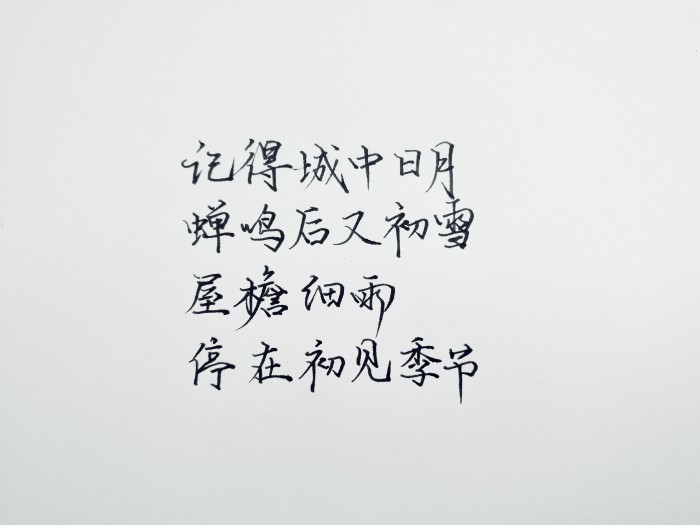 记得城中日月
蝉鸣后又初雪
屋檐细雨
停在初见季节